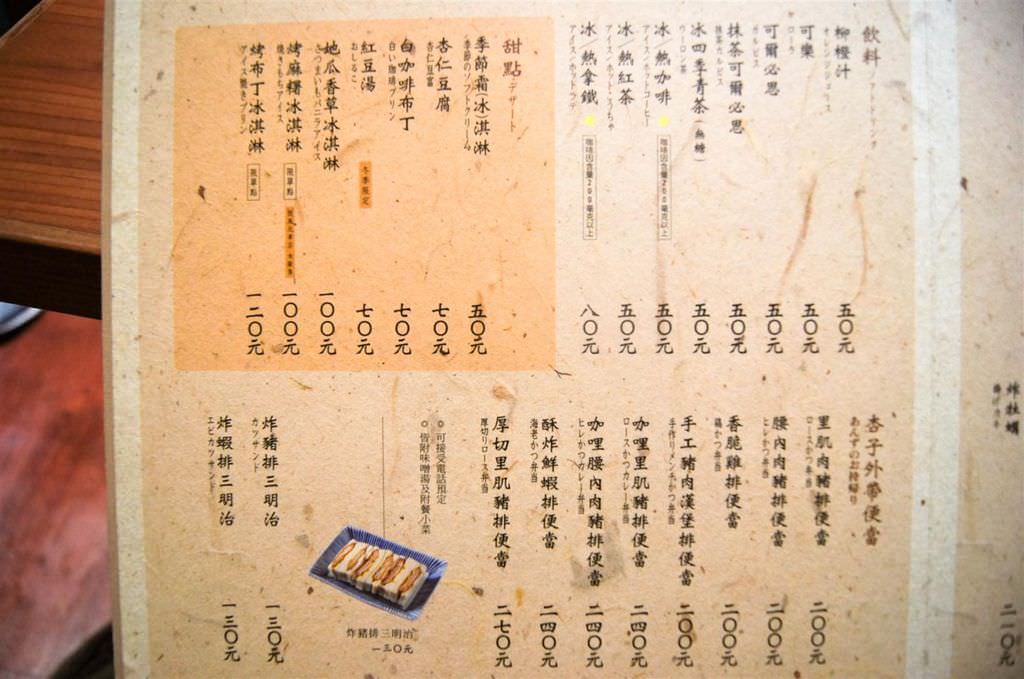 飲料 ソフトドリンク
柳橙汁 五〇元
オレンジジュース
可樂 五〇元
コーラ
可爾必思 五〇元
カルピス
抹茶可爾必思 五〇元
抹茶カルピス
冰四季青茶(無糖) 五〇元
ウーロン茶
冰/熱咖啡 咖啡因含量200毫克以上 五〇元
アイス/ホットコーヒー
冰/熱紅茶 五〇元
冰/熱拿鐵 咖啡因含量200毫克以上 八〇元
アイス/ホットラテ
甜點 デザート
季節霜(冰)淇淋 五〇元
季節のソフトクリーム
杏仁豆腐 七〇元
杏仁豆腐
白咖啡布丁 七〇元
白い珈琲プリン
紅豆湯 冬季限定 七〇元
おしるこ
地瓜香草冰淇淋 一〇〇元
さつまいもバニラアイス
烤麻糬冰淇淋 限單點 一〇〇元
焼きもちアイス
烤布丁冰淇淋 限單點 一二〇元
アイス焼きプリン
杏子外帶便當
あんずのお持帰り
里肌肉豬排便當 二〇〇元
ロースかつ弁当
腰內肉豬排便當 二〇〇元
ヒレかつ弁当
香脆雞排便當 二〇〇元
鶏かつ弁当
手工豬肉漢堡排便當 二〇〇元
手作りメンチかつ弁当
咖哩里肌豬排便當 二四〇元
ロースかつカレー弁当
咖哩腰內肉豬排便當 二四〇元
ヒレかつカレー弁当
酥炸鮮蝦排便當 二四〇元
海老かつ弁当
厚切里肌豬排便當 二七〇元
厚切りロース弁当
可接受電話預定
皆附味噌湯及附餐小菜
炸豬排三明治
一三〇元
炸豬排三明治 一三〇元
カツサンド
炸蝦排三明治 一三〇元
エビカツサンド
炸牡蠣 二一〇元
揚げカキ